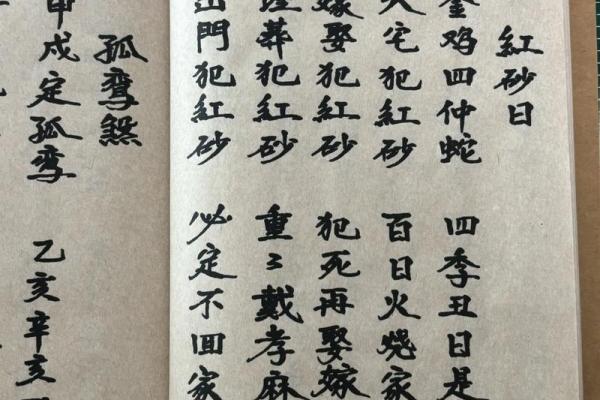 紅砂日
金鸡四仲蛇 四季丑日是
入宅犯紅砂 百日火燒家
嫁娶犯紅砂 犯死再娶嫁
埋葬犯紅砂 重〻戴孝麻
出門犯紅砂 必定不回家
孤鸞煞
甲戌定孤鸞 乙亥辛亥